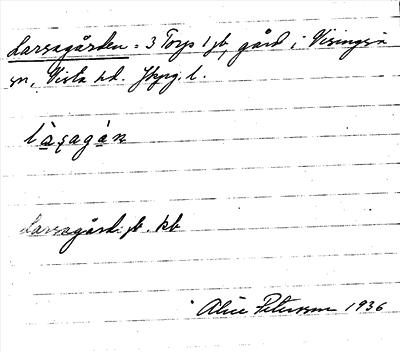 Larsagården = 3 Torp 1 jb, gård i Visingsö
sn, Vista hd. Jkpg. l.
làsagán
Larsagård: jb. kb
Alice Petersson 1936